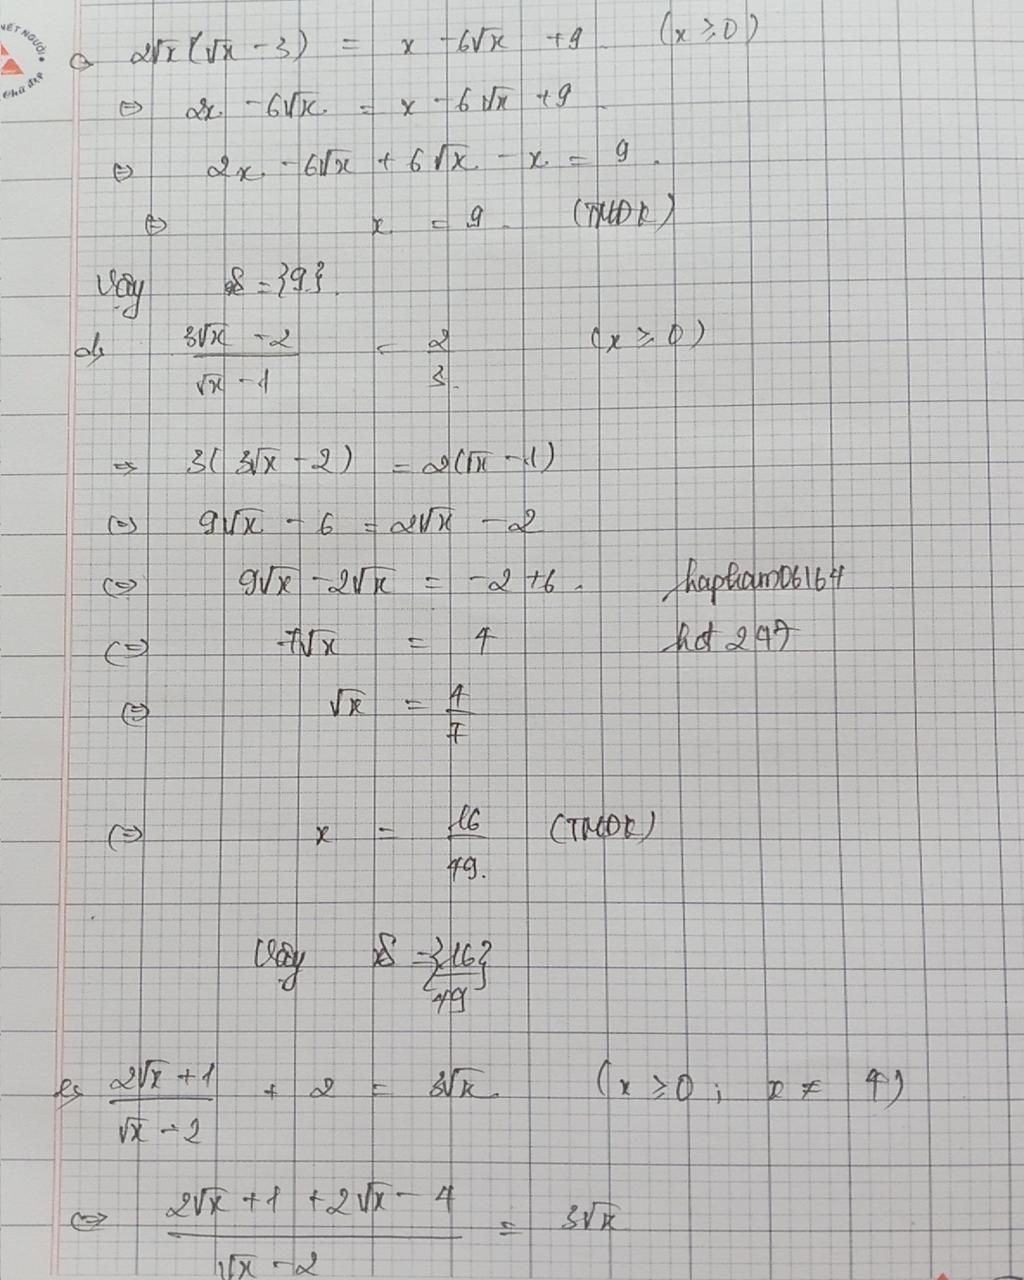 NÉT NGƯỜI
chữ đẹp
c, 2√x(√x - 3) = x - 6√x + 9 (x ≥ 0)
⇔ 2x - 6√x = x - 6√x + 9
⇔ 2x - 6√x + 6√x - x = 9.
⇔ x = 9. (TMĐK)
Vậy S = {9}.
d, (3√x - 2)/(√x - 1) = 2/3. (x ≥ 0)
⇒ 3(3√x - 2) = 2(√x - 1)
⇔ 9√x - 6 = 2√x - 2
⇔ 9√x - 2√x = -2 + 6.
hapham06164
⇔ 7√x = 4
hot 247
⇔ √x = 4/7
⇔ x = 16/49. (TMĐK)
Vậy S = {16/49}
e, (2√x + 1)/(√x - 2) + 2 = 3√x. (x ≥ 0; x ≠ 4)
⇔ (2√x + 1 + 2√x - 4)/(√x - 2) = 3√x